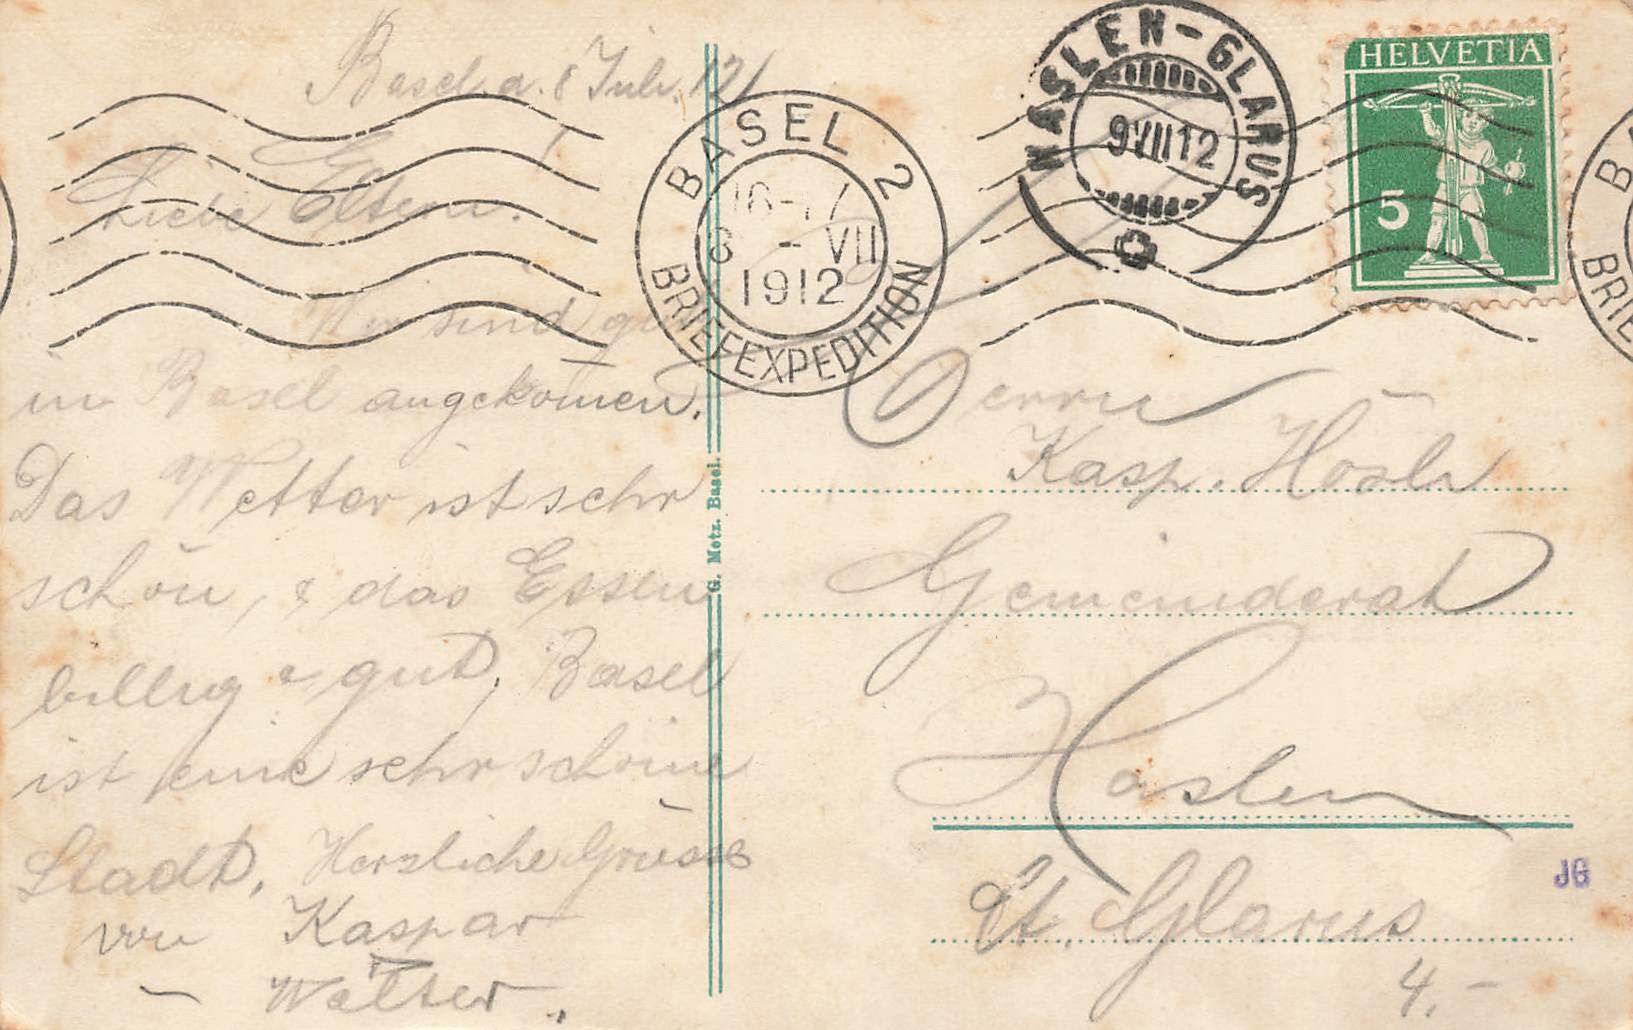 Basel d. 8 Juli. 12
Liebe Eltern!
Wir sind gut
in Basel angekomen.
Das Wetter ist sehr
schön, & das Essen
billig & gut, Basel
ist eine sehr schöne
Stadt, Herzliche Grüsse
von Kaspar
- Walter.
G. Metz, Basel.
BASEL 2
16-17
8 - VII
1912
BRIEFEXPEDITION
HASLEN-GLARUS
9 VII 12
HELVETIA
5
BA
BRIE
Herrn
Kasp. Hösli
Gemeinderat
Haslen
Ct. Glarus
JG
4.-